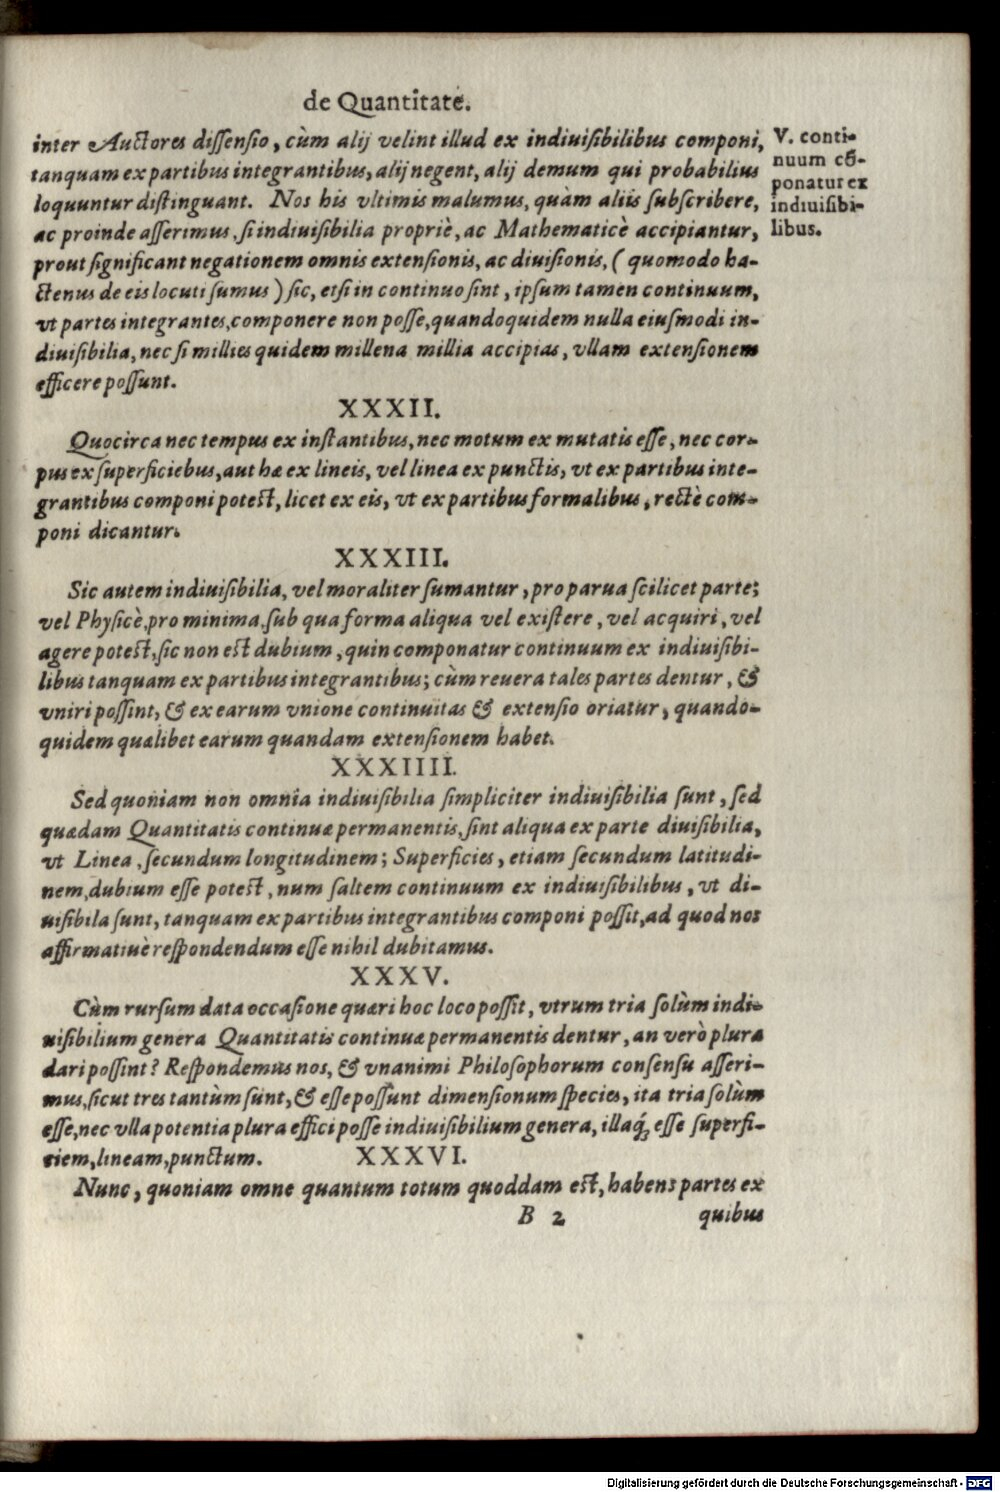 de Quantitate.
inter Auctores dissensio, cùm alij velint illud ex indiuisibilibus componi,
tanquam ex partibus integrantibus, alij negent, alij demum qui probabilius
loquuntur distinguant. Nos his vltimis malumus, quàm aliis subscribere,
ac proinde asserimus, si indiuisibilia propriè, ac Mathematicè accipiantur,
prout significant negationem omnis extensionis, ac diuisionis, (quomodo ha-
ctenus de eis locuti sumus) sic, etsi in continuo sint, ipsum tamen continuum,
vt partes integrantes, componere non posse, quandoquidem nulla eiusmodi in-
diuisibilia, nec si millies quidem millena millia accipias, vllam extensionem
efficere possunt.
V. conti-
nuum cō-
ponatur ex
indiuisibi-
libus.
XXXII.
Quocirca nec tempus ex instantibus, nec motum ex mutatis esse, nec cor-
pus ex superficiebus, aut hæ ex lineis, vel linea ex punctis, vt ex partibus inte-
grantibus componi potest, licet ex eis, vt ex partibus formalibus, rectè com-
poni dicantur.
XXXIII.
Sic autem indiuisibilia, vel moraliter sumantur, pro parua scilicet parte;
vel Physicè, pro minima, sub qua forma aliqua vel existere, vel acquiri, vel
agere potest, sic non est dubium, quin componatur continuum ex indiuisibi-
libus tanquam ex partibus integrantibus; cùm reuera tales partes dentur, &
vniri possint, & ex earum vnione continuitas & extensio oriatur, quando-
quidem quælibet earum quandam extensionem habet.
XXXIIII.
Sed quoniam non omnia indiuisibilia simpliciter indiuisibilia sunt, sed
quædam Quantitatis continuæ permanentis, sint aliqua ex parte diuisibilia,
vt Linea, secundum longitudinem; Superficies, etiam secundum latitudi-
nem, dubium esse potest, num saltem continuum ex indiuisibilibus, vt di-
uisibila sunt, tanquam ex partibus integrantibus componi possit, ad quod nos
affirmatiuè respondendum esse nihil dubitamus.
XXXV.
Cùm rursum data occasione quæri hoc loco possit, vtrum tria solùm indi-
uisibilium genera Quantitatis continuæ permanentis dentur, an verò plura
dari possint? Respondemus nos, & vnanimi Philosophorum consensu asseri-
mus, sicut tres tantùm sunt, & esse possunt dimensionum species, ita tria solùm
esse, nec vlla potentia plura effici posse indiuisibilium genera, illaq́; esse superfi-
ciem, lineam, punctum. XXXVI.
Nunc, quoniam omne quantum totum quoddam est, habens partes ex
B 2 quibus
Digitalisierung gefördert durch die Deutsche Forschungsgemeinschaft - DFG